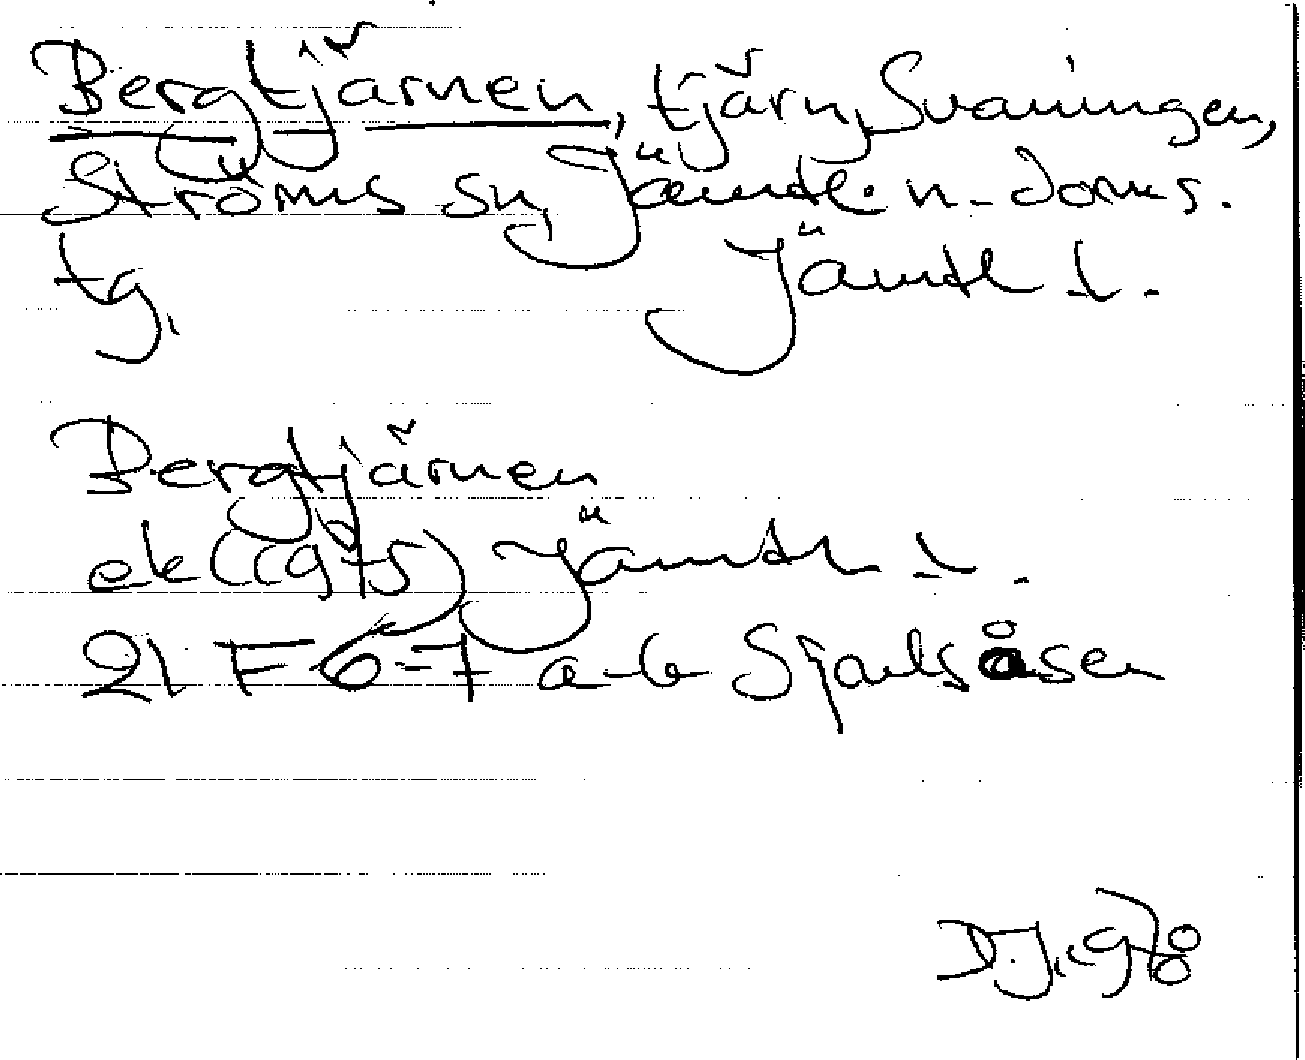 Bergtjärnen, tjärn, Svaningen,
Ströms sn, Jämtl. n. doms.
tg, Jämtl l.
Bergtjärnen
ek ((gts) Jämtl l.
21 F 6-7 a-b Sjoulsåsen
D.J.